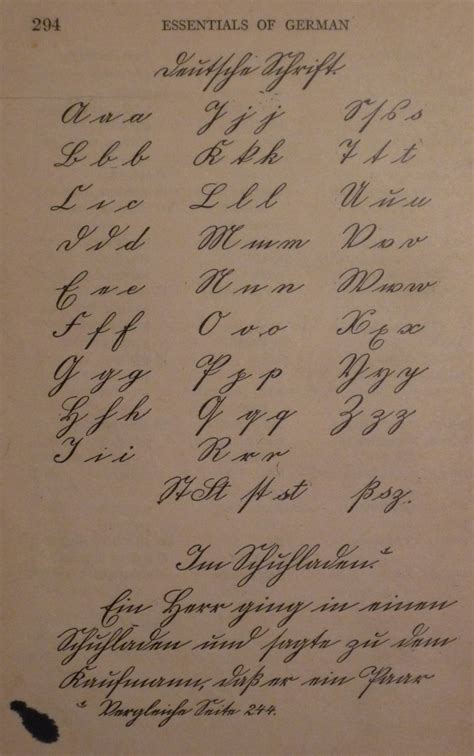 294 ESSENTIALS OF GERMAN
Deutsche Schrift.
A a a J j j S ſ s s
B b b K k k T t t
C c c L l l U u u
D d d M m m V v v
E e e N n n W w w
F f f O o o X x x
G g g P p p Y y y
H h h Q q q Z z z
I i i R r r
St St st st ß sz.
Im Schuhladen.*
Ein Herr ging in einen
Schuhladen und sagte zu dem
Kaufmann, daß er ein Paar
* Vergleiche Seite 244.